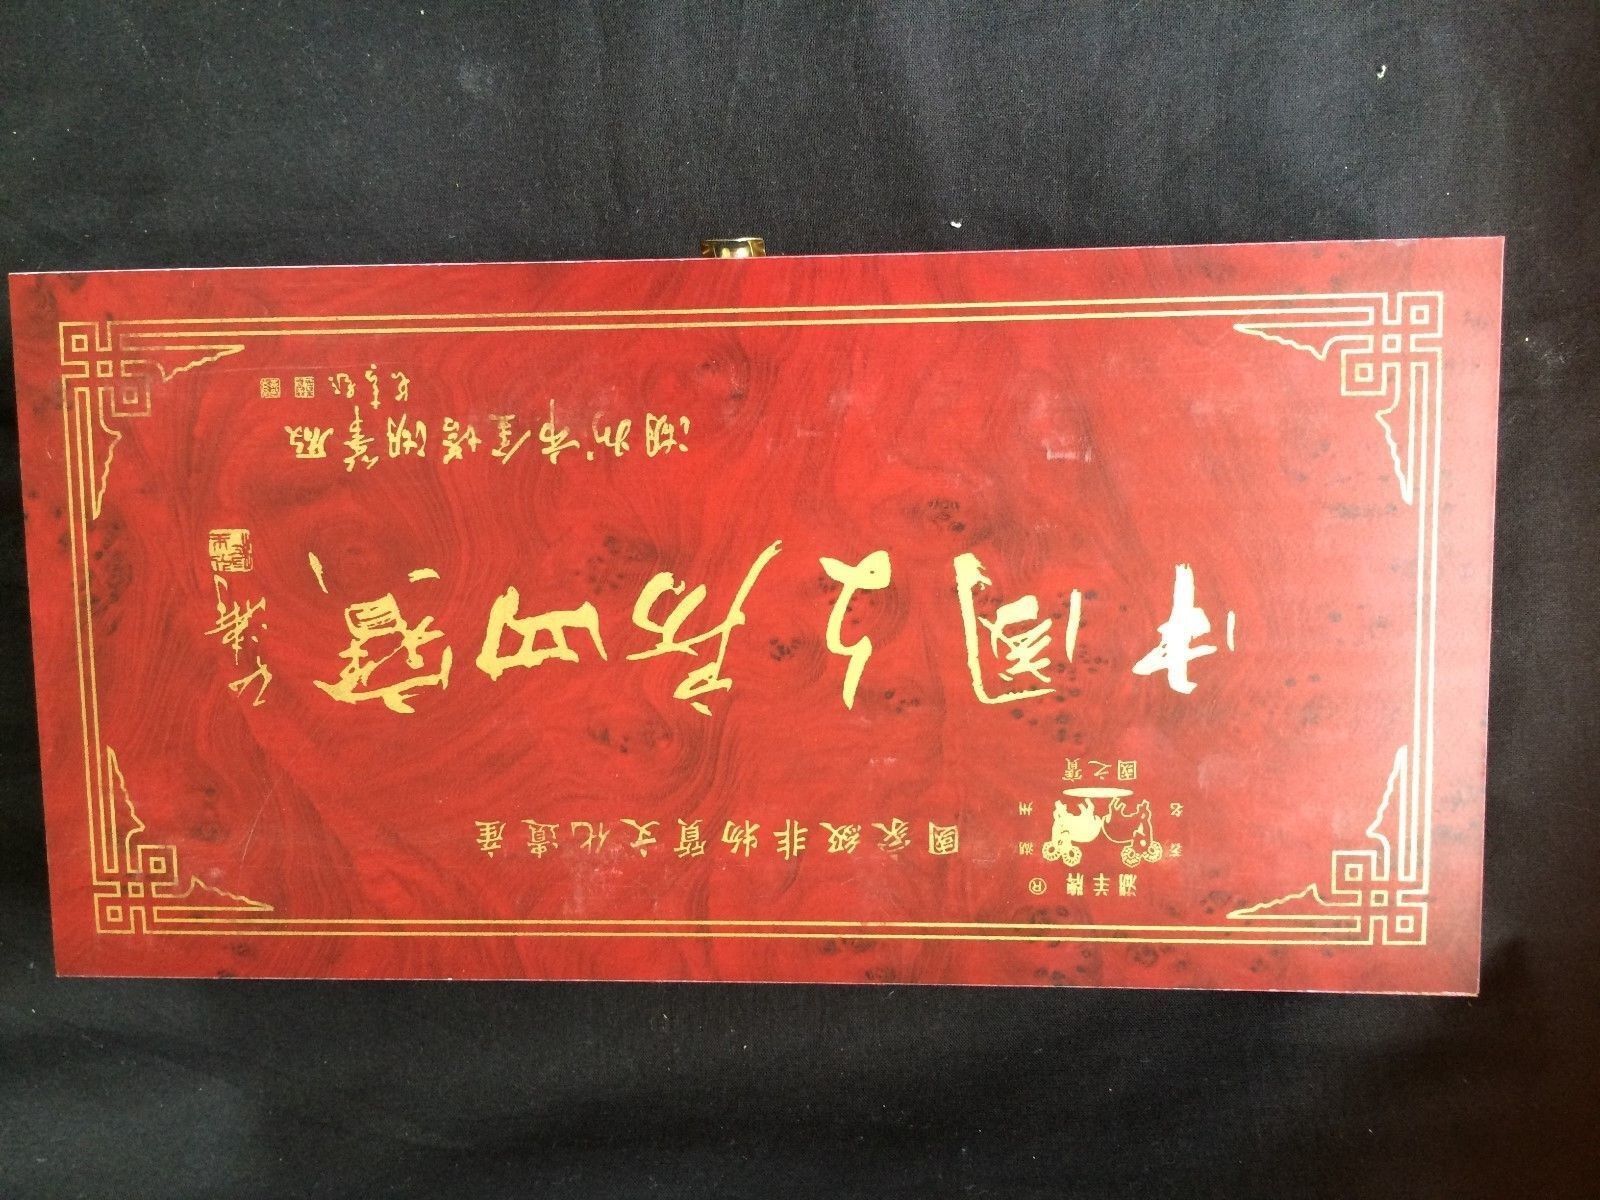 雙羊牌 ®
湖州
國之寶
國家級非物質文化遺産
中國文房四寶
湖州市金塔湖筆廠